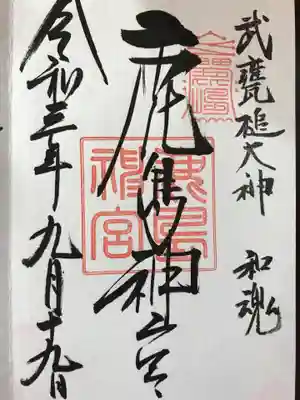 武甕槌大神 和魂
鹿島神宮
鹿島神宮
令和三年九月十九日